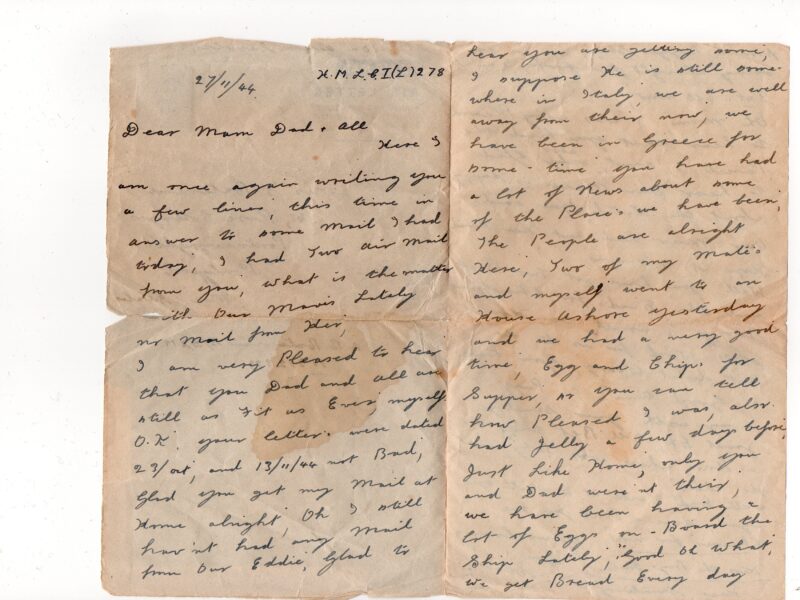 27/11/44
H.M.L.C.I(L)278
Dear Mam Dad & All
Here I
am once again writing you
a few lines, this time in
answer to some mail I had
today, I had Two air mail
from you, what is the matter
ith Our Mavis Lately
no Mail from Her,
I am very Pleased to hear
that you Dad and all are
still as Fit as Ever myself
O.K. your letters were dated
23/oct, and 13/11/44 not Bad,
Glad you get my Mail at
Home alright, Oh I still
hav'nt had any Mail
from Our Eddie, Glad to
hear you are getting some,
I suppose He is still some-
where in Italy, we are well
away from their now, we
have been in Greece for
some-time you have had
a lot of News about some
of the Place's we have been,
The People are alright
Here, Two of my Mate's
and myself went to an
House Ashore yesterday
and we had a very good
time, Egg and Chips for
Supper, so you can tell
how Pleased I was, also
had Jelly a few days before,
Just Like Home, only you
and Dad were'nt their,
we have been having a
lot of Eggs on-Board the
Ship Lately, "Good Oh What,
We get Bread Every day